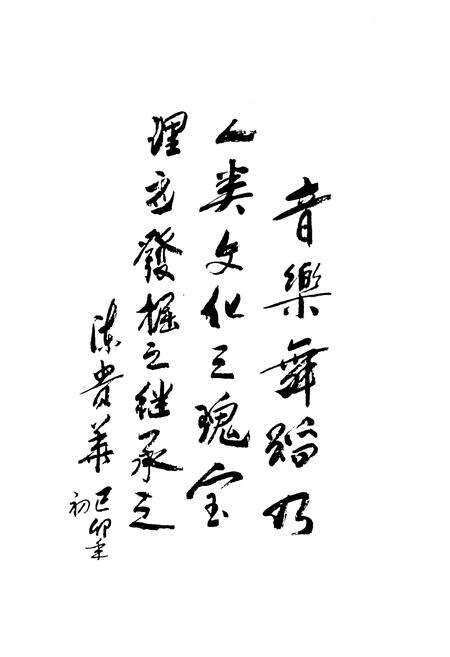 音樂舞蹈乃
人类文化之瑰宝
理应發掘之继承之
陈贵華
己卯
初